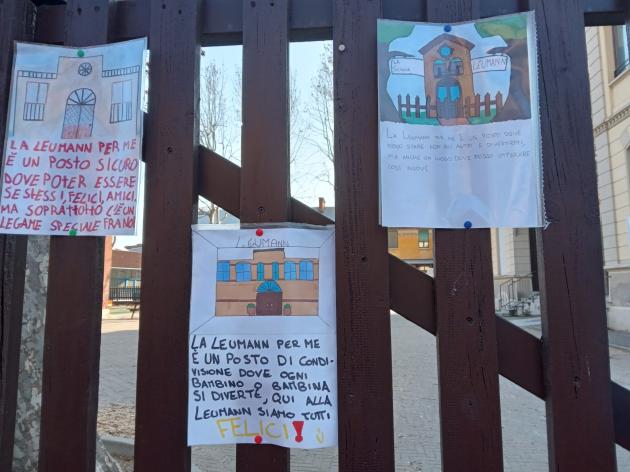 LA LEUMANN PER ME
È UN POSTO SICURO
DOVE POTER ESSERE
SE STESSI, FELICI, AMICI.
MA SOPRATTOTTO C'È UN
LEGAME SPECIALE FRA NOI
LEUMANN
LA LEUMANN PER ME
È UN POSTO DI CONDI-
VISIONE DOVE OGNI
BAMBINO O BAMBINA
SI DIVERTE, QUI ALLA
LEUMANN SIAMO TUTTI
FELICI!
LA
LEUMANN
LA LEUMANN PER ME È UN POSTO DOVE
POSSO STARE CON GLI ALTRI E DIVERTIRMI,
MA ANCHE UN LUOGO DOVE POSSO IMPARARE
COSE NUOVE